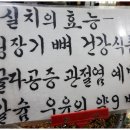 멸치의 효능
성장기 뼈 건강식품
골다공증 관절염 예
칼슘 우유의 약 9배